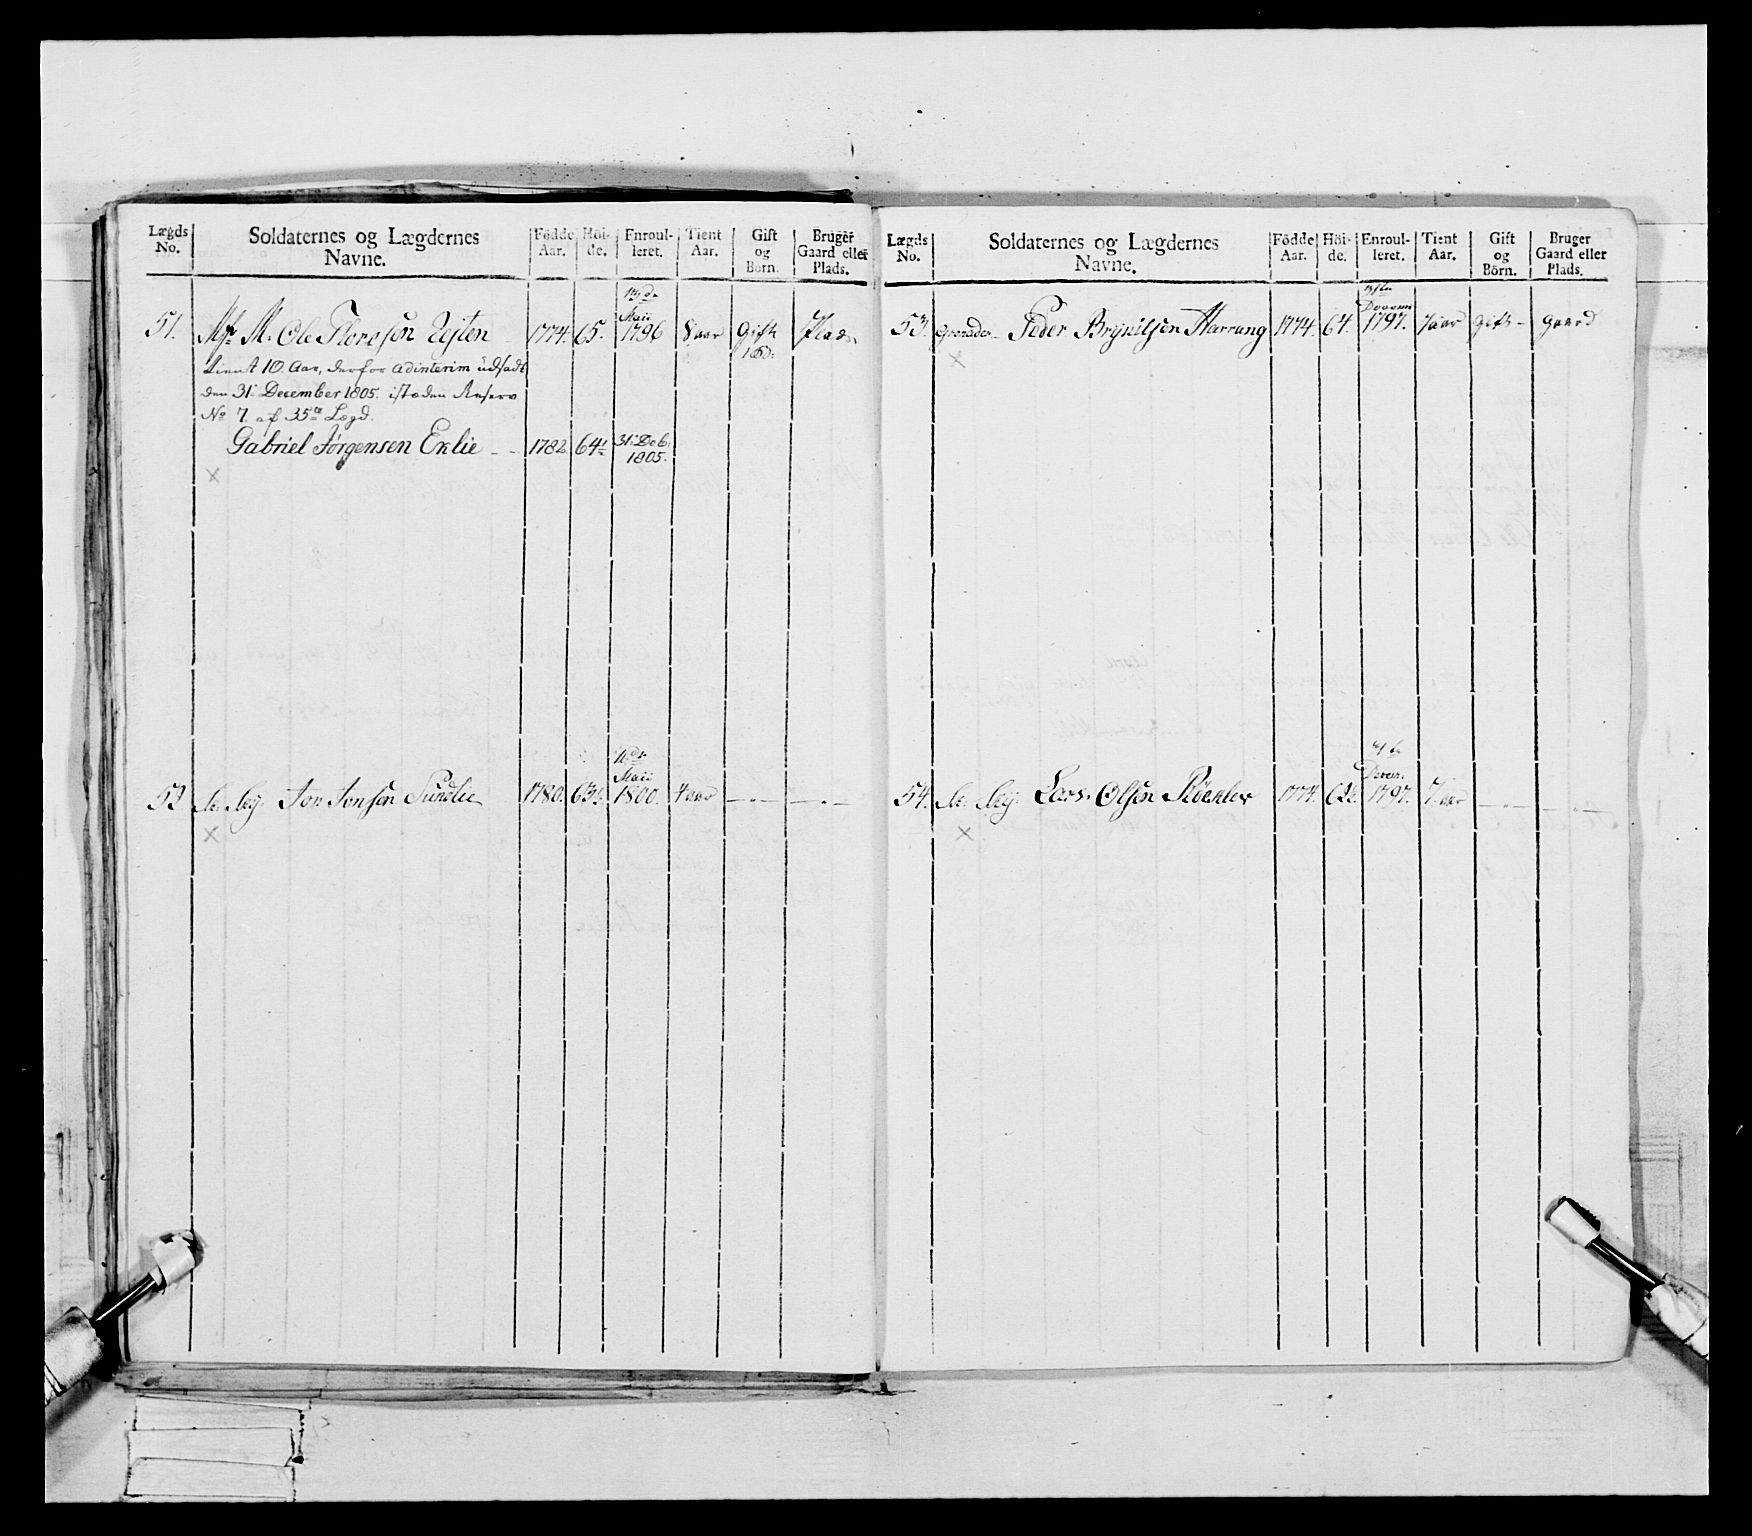 Lægds No.
Soldaternes og Lægdernes Navne.
Födde Aar.
Höi- de.
Enroul- leret.
Tient Aar.
Gift og Börn.
Bruger Gaard eller Plads.
51. Ole Thoresön 1774. 65. Maii 1796 8 aar Gift 1 Plads.
tient 10. Aar, derfor adinterim udsadt
den 31. December 1805. istæden Reserv
No 7. af 35te Lægd.
Gabriel Jørgensen Eklie 1782 64½ 31. Deb: 1805.
x
Jon Jonsön Sundlie 1780. 63½ Maii 1800. 4 aar
x
Lægds No.
Soldaternes og Lægdernes Navne.
Födde Aar.
Höi- de.
Enroul- leret.
Tient Aar.
Gift og Börn.
Bruger Gaard eller Plads.
53. Peder Brynilsen Harrang 1774. 64. 1797. 7 aar Gift Gaard
x
54. Lars Olsön 1774. 1797. 7 aar
x